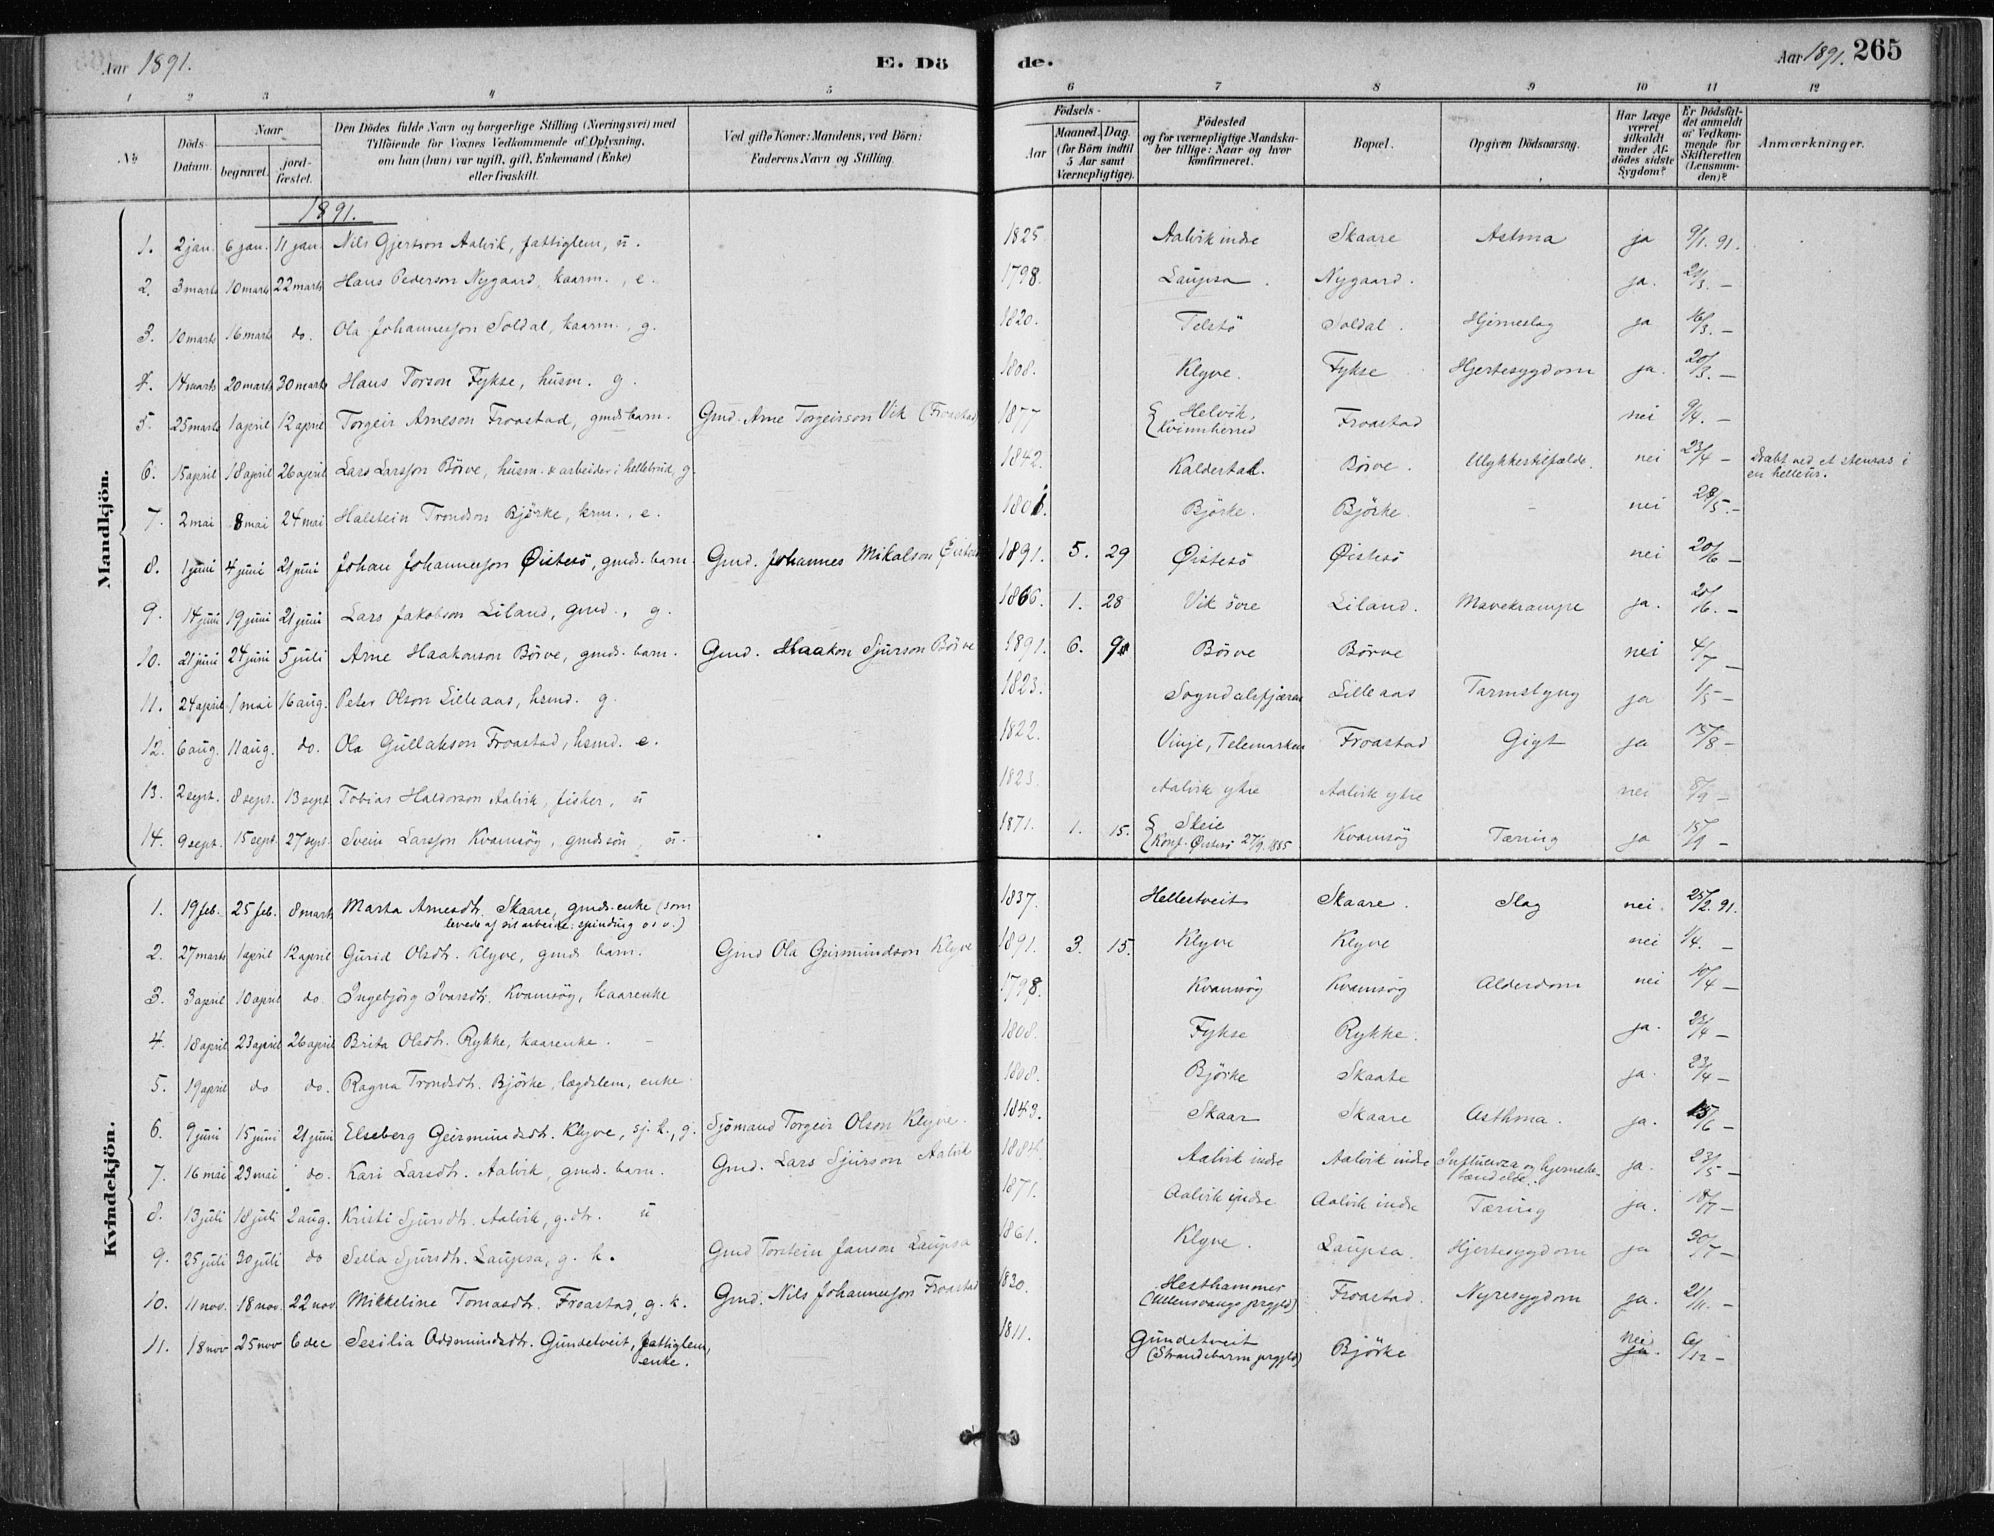 Aar 1891.
E. Dö
de.
Aar 1891. 265
1 2 3 4 5 6 7 8 9 10 11 12
No
Döds-Datum.
Naar
begravet.
jord-fæstet.
Den Dödes fulde Navn og borgerlige Stilling (Næringsvei) med
Tilföiende for Voxnes Vedkommende af Oplysning,
om han (hun) var ugift, gift, Enkemand (Enke)
eller fraskilt.
Ved gifte Koner: Mandens, ved Börn:
Faderens Navn og Stilling.
Födsels-
Aar
Maaned. Dag.
(for Börn indtil
5 Aar samt
Værnepligtige).
Födested
og for værnepligtige Mandska-
ber tillige: Naar og hvor
konfirmeret.
Bopæl.
Opgiven Dödsaarsag.
Har Læge
været
tilkaldt
under Af-
dödes sidste
Sygdom?
Er Dödsfal-
det anmeldt
af Vedkom-
mende for
Skifteretten
(Lensman-
den)?
Anmærkninger.
Mandkjön.
1891.
1. 2 jan. 6 jan. 11 jan. Nils Gjertson Aalvik, fattiglem, ü. 1825 Aalvik indre Skaare Astma ja 9/1. 91.
2. 3 marts 10 marts 22 marts Hans Pederson Nygaard, kaarm., e. 1798. Laupsa. Nygaard. ja. 21/3. —
3. 10 marts 16 marts do. Ola Johannesson Soldal, kaarm., g. 1820. Telstö Soldal. Hjerneslag ja 16/3. —
4. 14 marts 20 marts 30 marts Hans Torson Fykse, husm. g. 1808. Klyve. Fykse Hjertesygdom ja. 20/3. —
5. 25 marts 1 april 12 april Torgeir Arneson Froastad, gmds barn. Gmd. Arne Torgeirson Vik (Froastad) 1877 Helvik, Kvinnherred Froastad nei 9/4. —
6. 15 april 18 april 26 april Lars Larsson Börve, husm. & arbeider i hellebrud, g. 1842. Kaldestad. Börve. Ulykkestilfælde. nei 23/4 — Dræbt ved et stenras i
en helleur.
7. 2 mai 8 mai 24 mai Halstein Trondson Björke, krm., e. Björke. Björke. nei 28/5. —
8. 1 juni 4 juni 21 juni Johan Johannesson Øistesö, gmds. barn. Gmd. Johannes Mikalson Øistesö 1891. 5. 29 Øistesö Øistesö nei 20/6 —
9. 14 juni 19 juni 21 juni Lars Jakobson Liland, gmd., g. 1866. 1. 28 Vik övre Liland. Mavekrampe ja. 20/6. —
10. 21 juni 24 juni 5 juli Arne Haakonson Börve, gmds. barn. Gmd. Haakon Sjurson Börve 1891. 6. 9 Börve Börve nei 4/7 —
11. 24 april 1 mai 16 aug. Peter Olson Lilleaas, hsmd. g. 1823. Sogndalsfjæren Lilleaas Tarmslyng ja 1/5 —
12. 6 aug. 11 aug. do. Ola Gullakson Froastad, hsmd. e. 1822. Vinje, Telemarken Froastad Gigt ja 15/8 —
13. 2 sept. 8 sept. 13 sept Tobias Haldorson Aalvik, fisker, ü 1823. Aalvik ytre Aalvik ytre nei 8/9 —
14. 9 sept. 15 sept. 27 sept. Svein Larsson Kvamsög, gmds sön, ü. 1871. 1. 15. Skeie Konf. Øistesö 27/9. 1885 Kvamsög Tæring ja 15/9 —
Kvindekjön.
1. 19 feb. 25 feb. 8 marts Marta Arnesdtr. Skaare, gmds. enke (som
levede af sit arbeide: spinding o s v.) 1837. Hellestveit Skaare. Slag nei. 25/2. 91.
2. 27 marts 1 april 12 april Gurid Olsdtr. Klyve, gmds barn. Gmd Ola Geirmundson Klyve 1891. 3. 15. Klyve Klyve nei 1/4. —
3. 3 april 10 april do. Ingebjörg Ivarsdtr. Kvamsög, kaarenke 1798. Kvamsög Kvamsög Alderdom nei 10/4 —
4. 18 april 23 april 26 april Brita Olsdtr. Rykke, kaarenke. 1808. Fykse Rykke. ja. 23/4 —
5. 19 april do do. Ragna Trondsdtr. Björke, lægdslem, enke 1808. Björke Skaate ja. 23/4 —
6. 9 juni 15 juni 21 juni Elseberg Geirmundsdtr. Klyve, sj. k., g. Sjömand Torgeir Olson Klyve. 1843. Skaar Skaare Asthma. ja. 15/6 —
7. 16 mai 23 mai do. Kari Larsdtr. Aalvik, gmds. barn. Gmd. Lars Sjurson Aalvik 1884. Aalvik indre Aalvik indre Influenza og hjernebe-
tændelse. ja. 23/5 —
8. 13 juli 18 juli 2 aug. Kristi Sjursdtr. Aalvik, g. dtr. ü 1871. Aalvik indre Aalvik indre Tæring ja. 18/7 —
9. 25 juli 30 juli do Sella Sjursdtr. Laupsa, g. k. Gmd Torstein Janson Laupsa 1861. Klyve. Laupsa. Hjertesygdom ja 30/7 —
10. 11 nov. 18 nov. 22 nov. Mikkeline Tomasdtr. Froastad, g. k. Gmd. Nils Johannesson Froastad 1830. Hesthammer
(Ullensvangs prgjld) Froastad. Nyresygdom ja. 21/11. —
11. 18 nov 25 nov 6 dec Sesilia Odsmundsdtr. Gundetveit, fattiglem,
enke. 1811. Gundetveit
(Strandebarm prgjld) Björke nei ja. 6/12 —